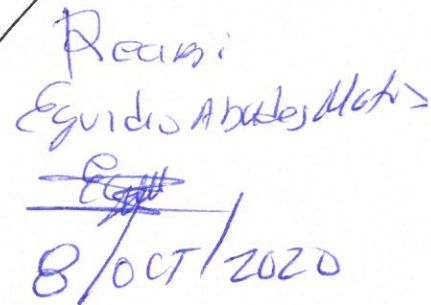 Recibi
Eguidio Abudes Matos
8/OCT/2020